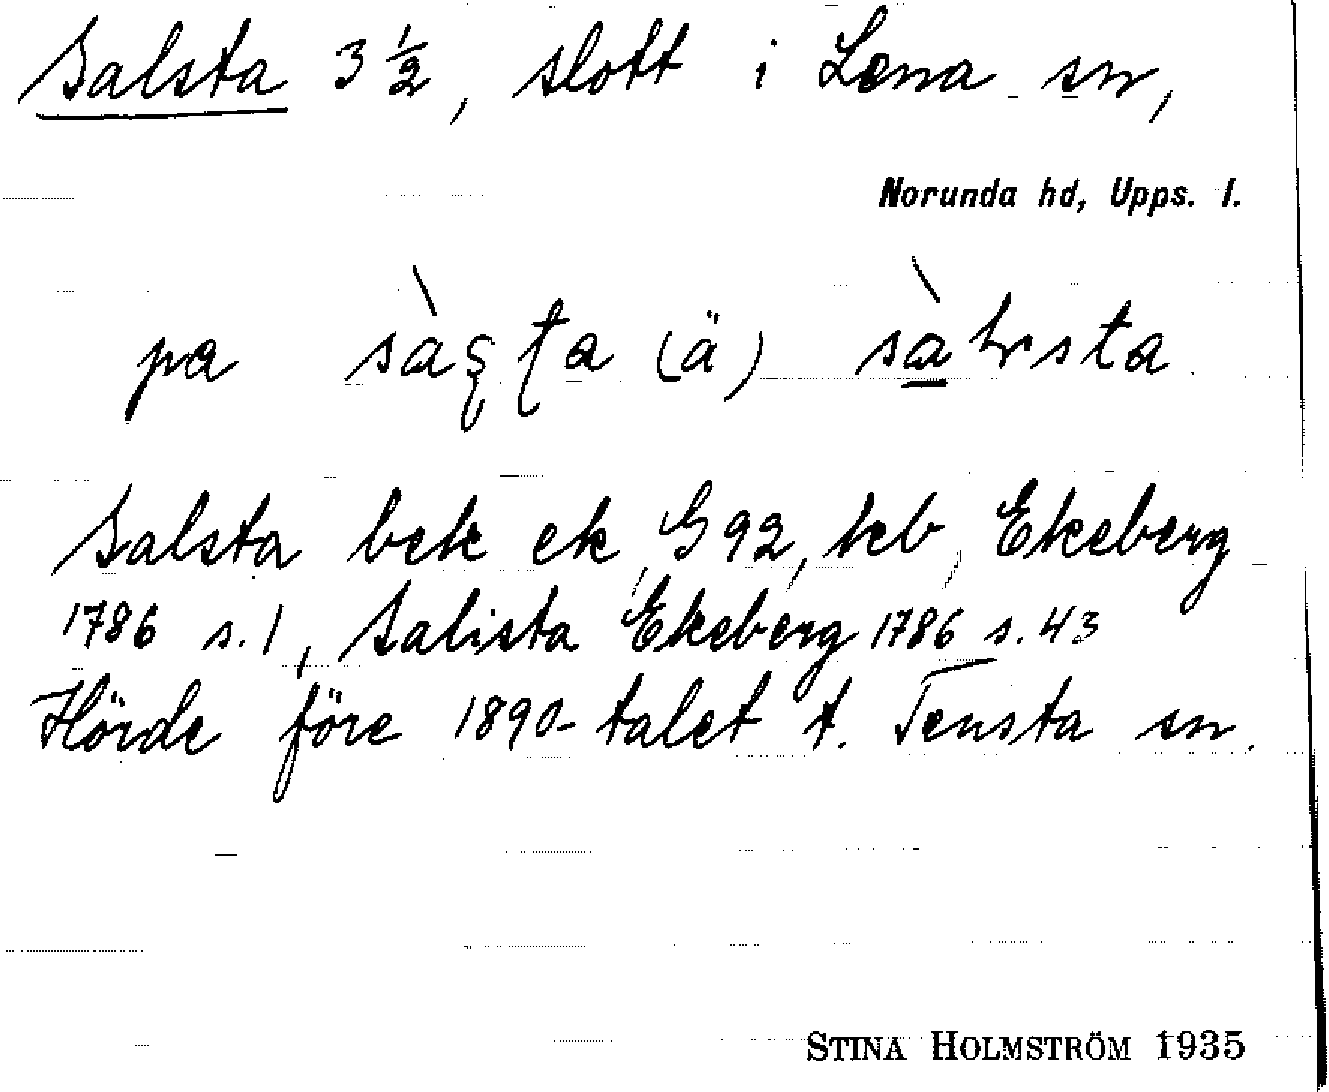 Salsta 3 ½, slott i Lena sn,
Norunda hd, Upps. l.
pa sàşʈa (ä) sàlsta
Salsta bek ek, G 92, kb, Ekeberg
1786 s. 1, Salista Ekeberg 1786 s. 43
Hörde före 1890-talet t. Tensta sn.
STINA HOLMSTRÖM 1935